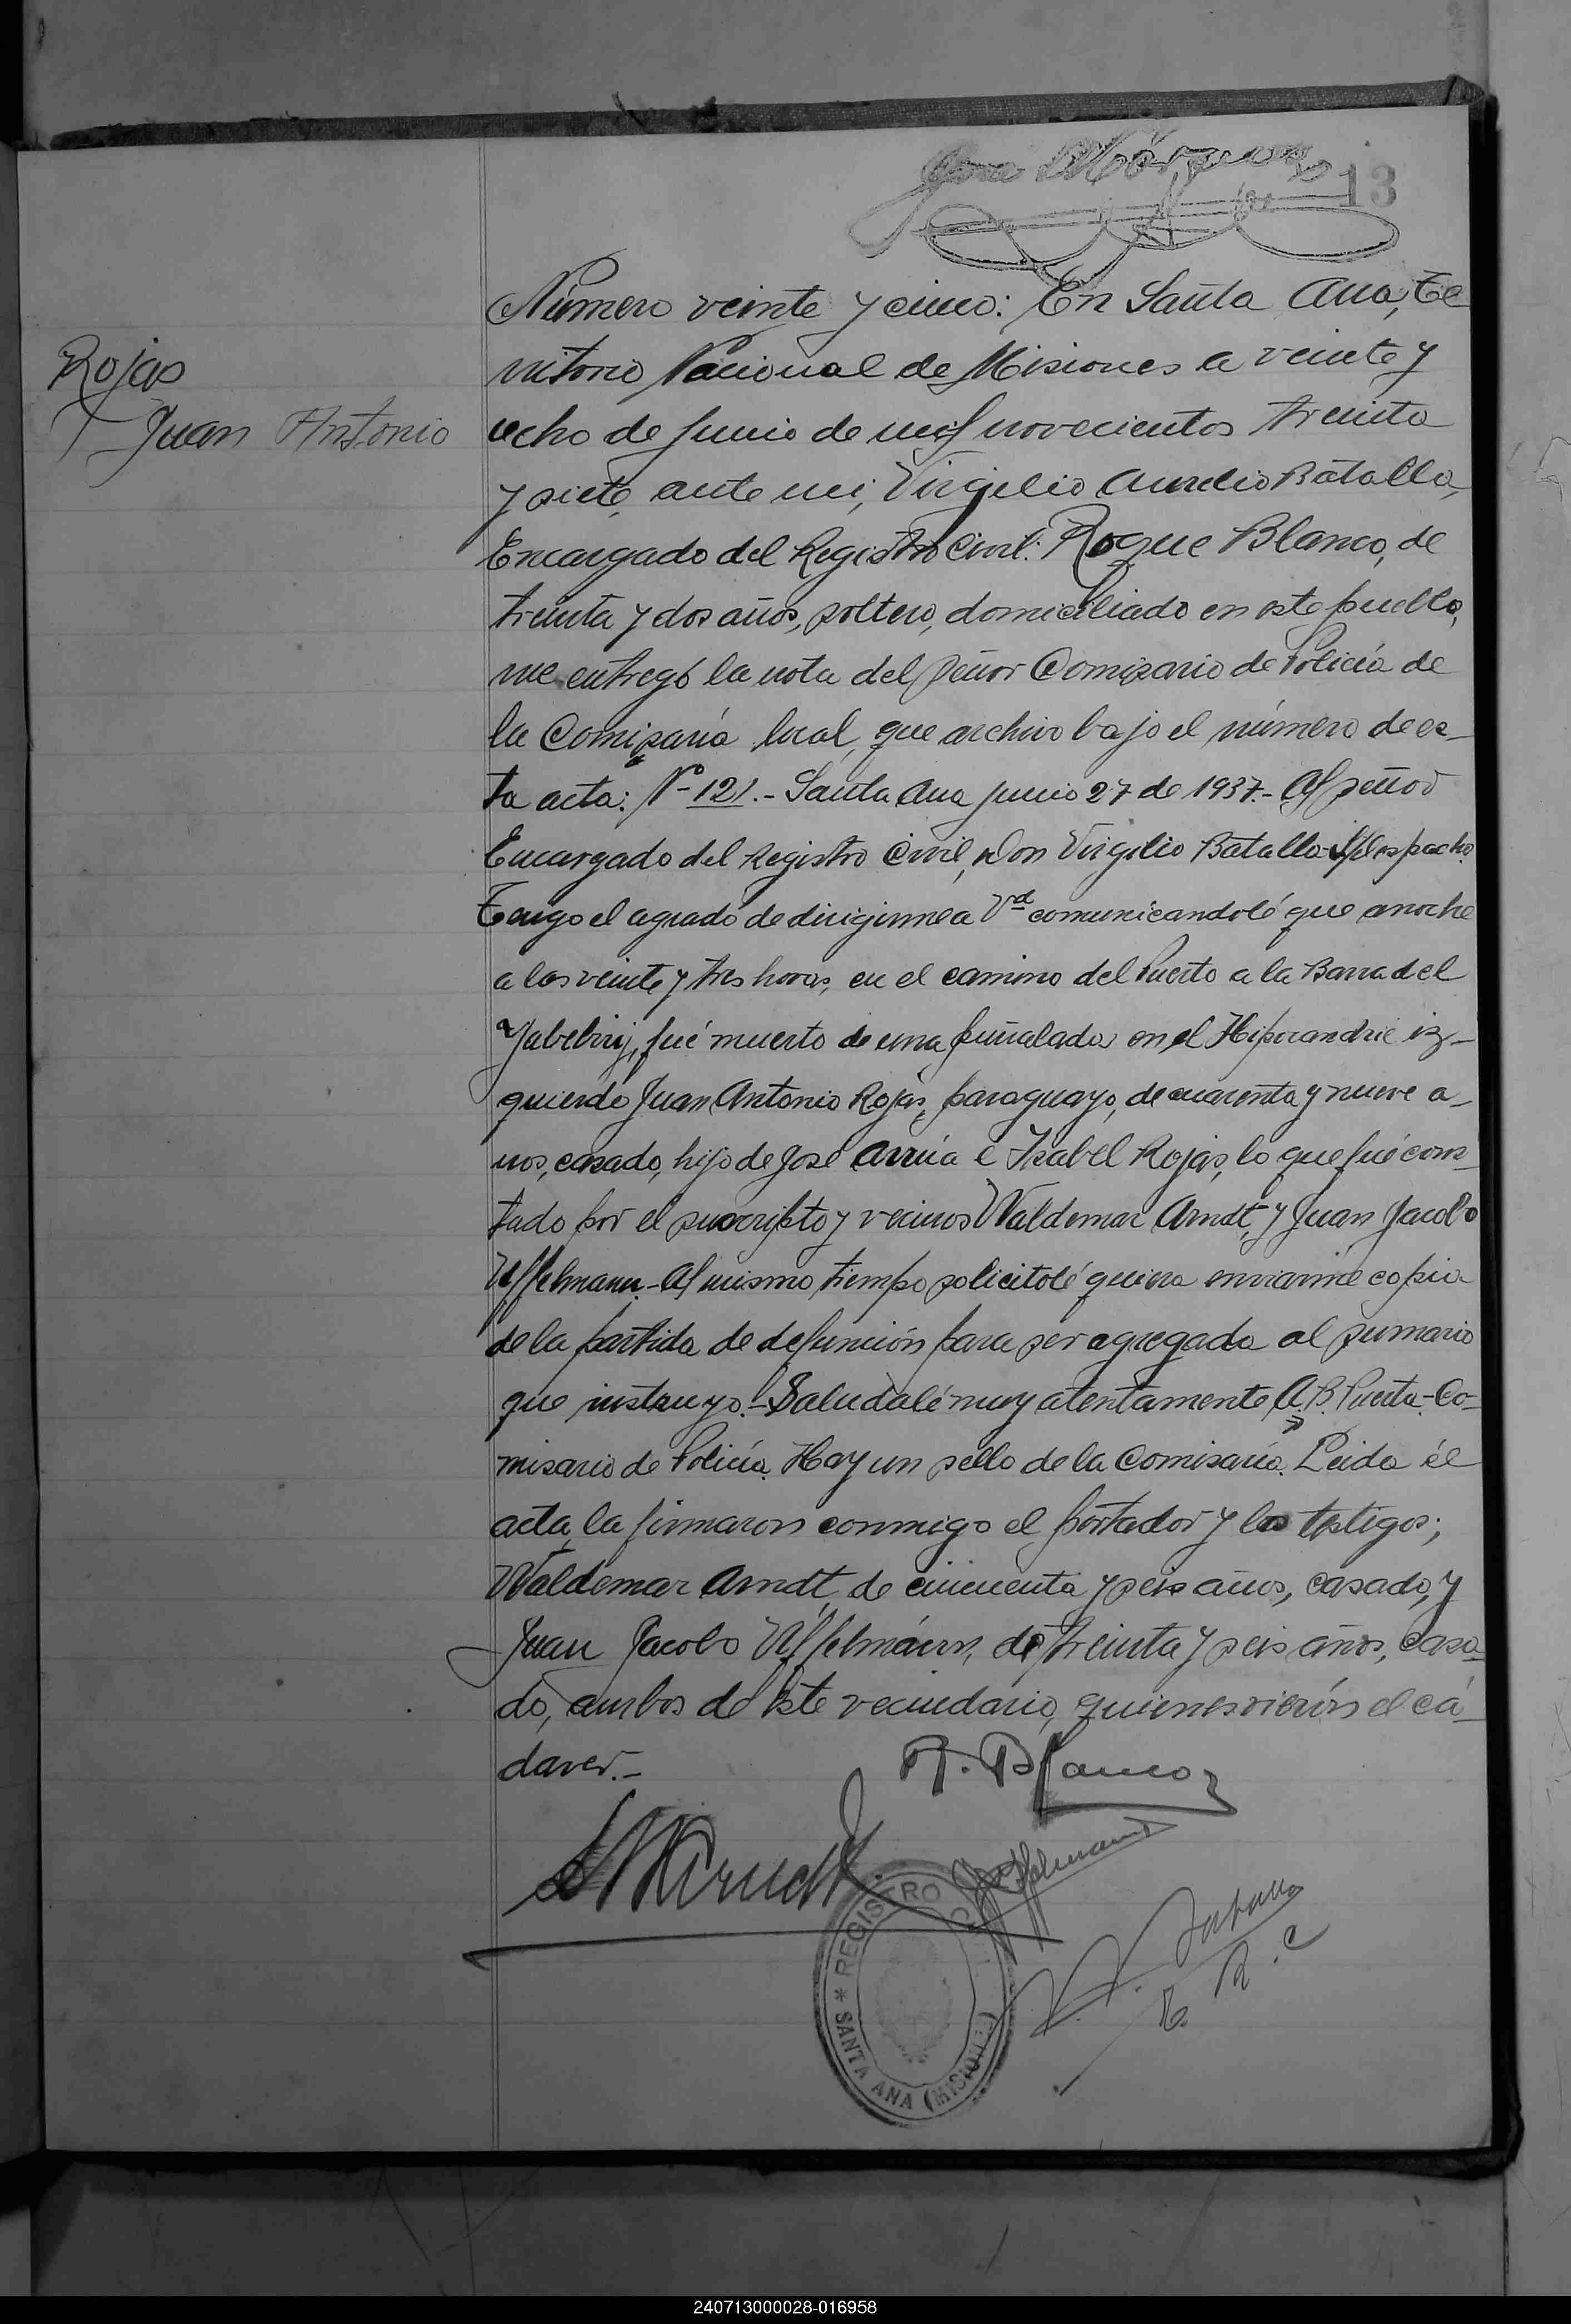 José Márquez
13
Rojas
Juan Antonio
Número veinte y cinco: En Santa Ana, Te
rritorio Nacional de Misiones a veinte y
ocho de Junio de mil novecientos treinta
y siete, ante mi, Virgilio Aurelio Batalla,
Encargado del Registro Civil: Roque Blanco, de
treinta y dos años, soltero, domiciliado en este pueblo,
me entregó la nota del Señor Comisario de Policía de
la Comisaría local, que archivo bajo el número de es-
ta acta: Nº 121.- Santa Ana Junio 27 de 1937.- Al Señor
Encargado del Registro Civil, Don Virgilio Batalla S/Despacho.
Tengo el agrado de dirigirme a Vd comunicandolé que anoche
a las veinte y tres horas, en el camino del Puerto a la Barra del
Yabebirý, fué muerto de una puñalada en el Hipocandrie iz-
quierdo Juan Antonio Rojas, paraguayo, de cuarenta y nueve a-
ños, casado, hijo de José Arrúa é Isabel Rojas, lo que fué cons-
tado por el suscripto y vecinos Waldemar Arndt, y Juan Jacobo
Uffelmann.- Al mismo tiempo solicitolé quiera enviarme copia
de la partida de defunción para ser agregada al sumario
que instruyo.- Saludalé muy atentamente A. B. Puerta.- Co-
misario de Policía. Hay un sello de la Comisaría. Leida él
acta, la firmaron conmigo el portador y los testigos;
Waldemar Arndt, de cincuenta y seis años, casado, y
Juan Jacobo Uffelmánn, de treinta y seis años, casa-
do, ambos de este vecindario, quienes vierón el cá-
daver.-
R. Blanco
W Arndt
J. J. Uffelmann
V. A. Batalla
E. R. C
REGISTRO CIVIL
* SANTA ANA (MISIONES)
240713000028-016958